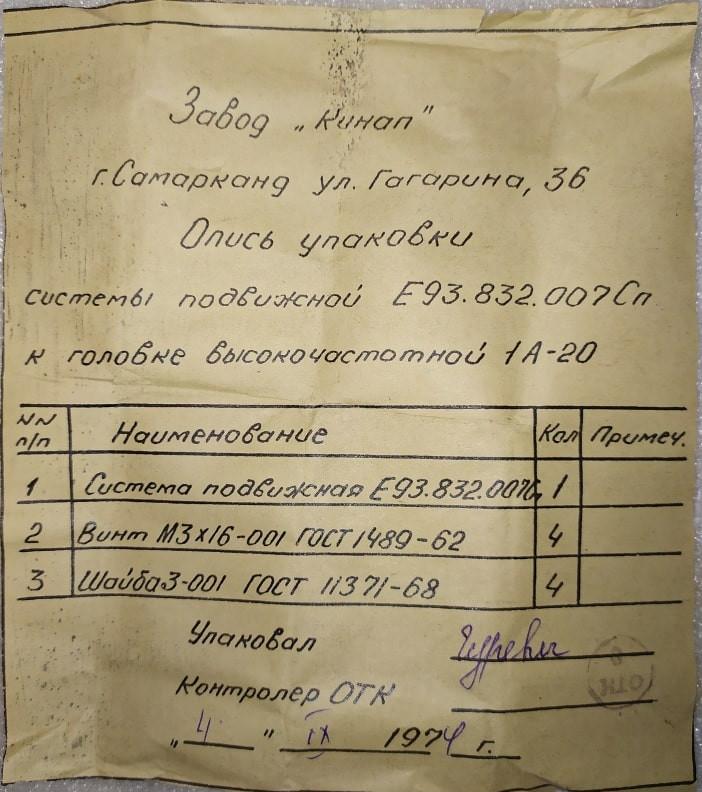 Завод „Кинап"
г. Самарканд ул. Гагарина, 36
Опись упаковки
системы подвижной Е93.832.007Сп
к головке высокочастотной 1А-20
NN п/п Наименование Кол Примеч.
1 Система подвижная Е93.832.007С 1
2 Винт М3х16-001 ГОСТ 1489-62 4
3 Шайба 3-001 ГОСТ 11371-68 4
Упаковал
Контролер ОТК
ОТК
„4" IX 1974 г.